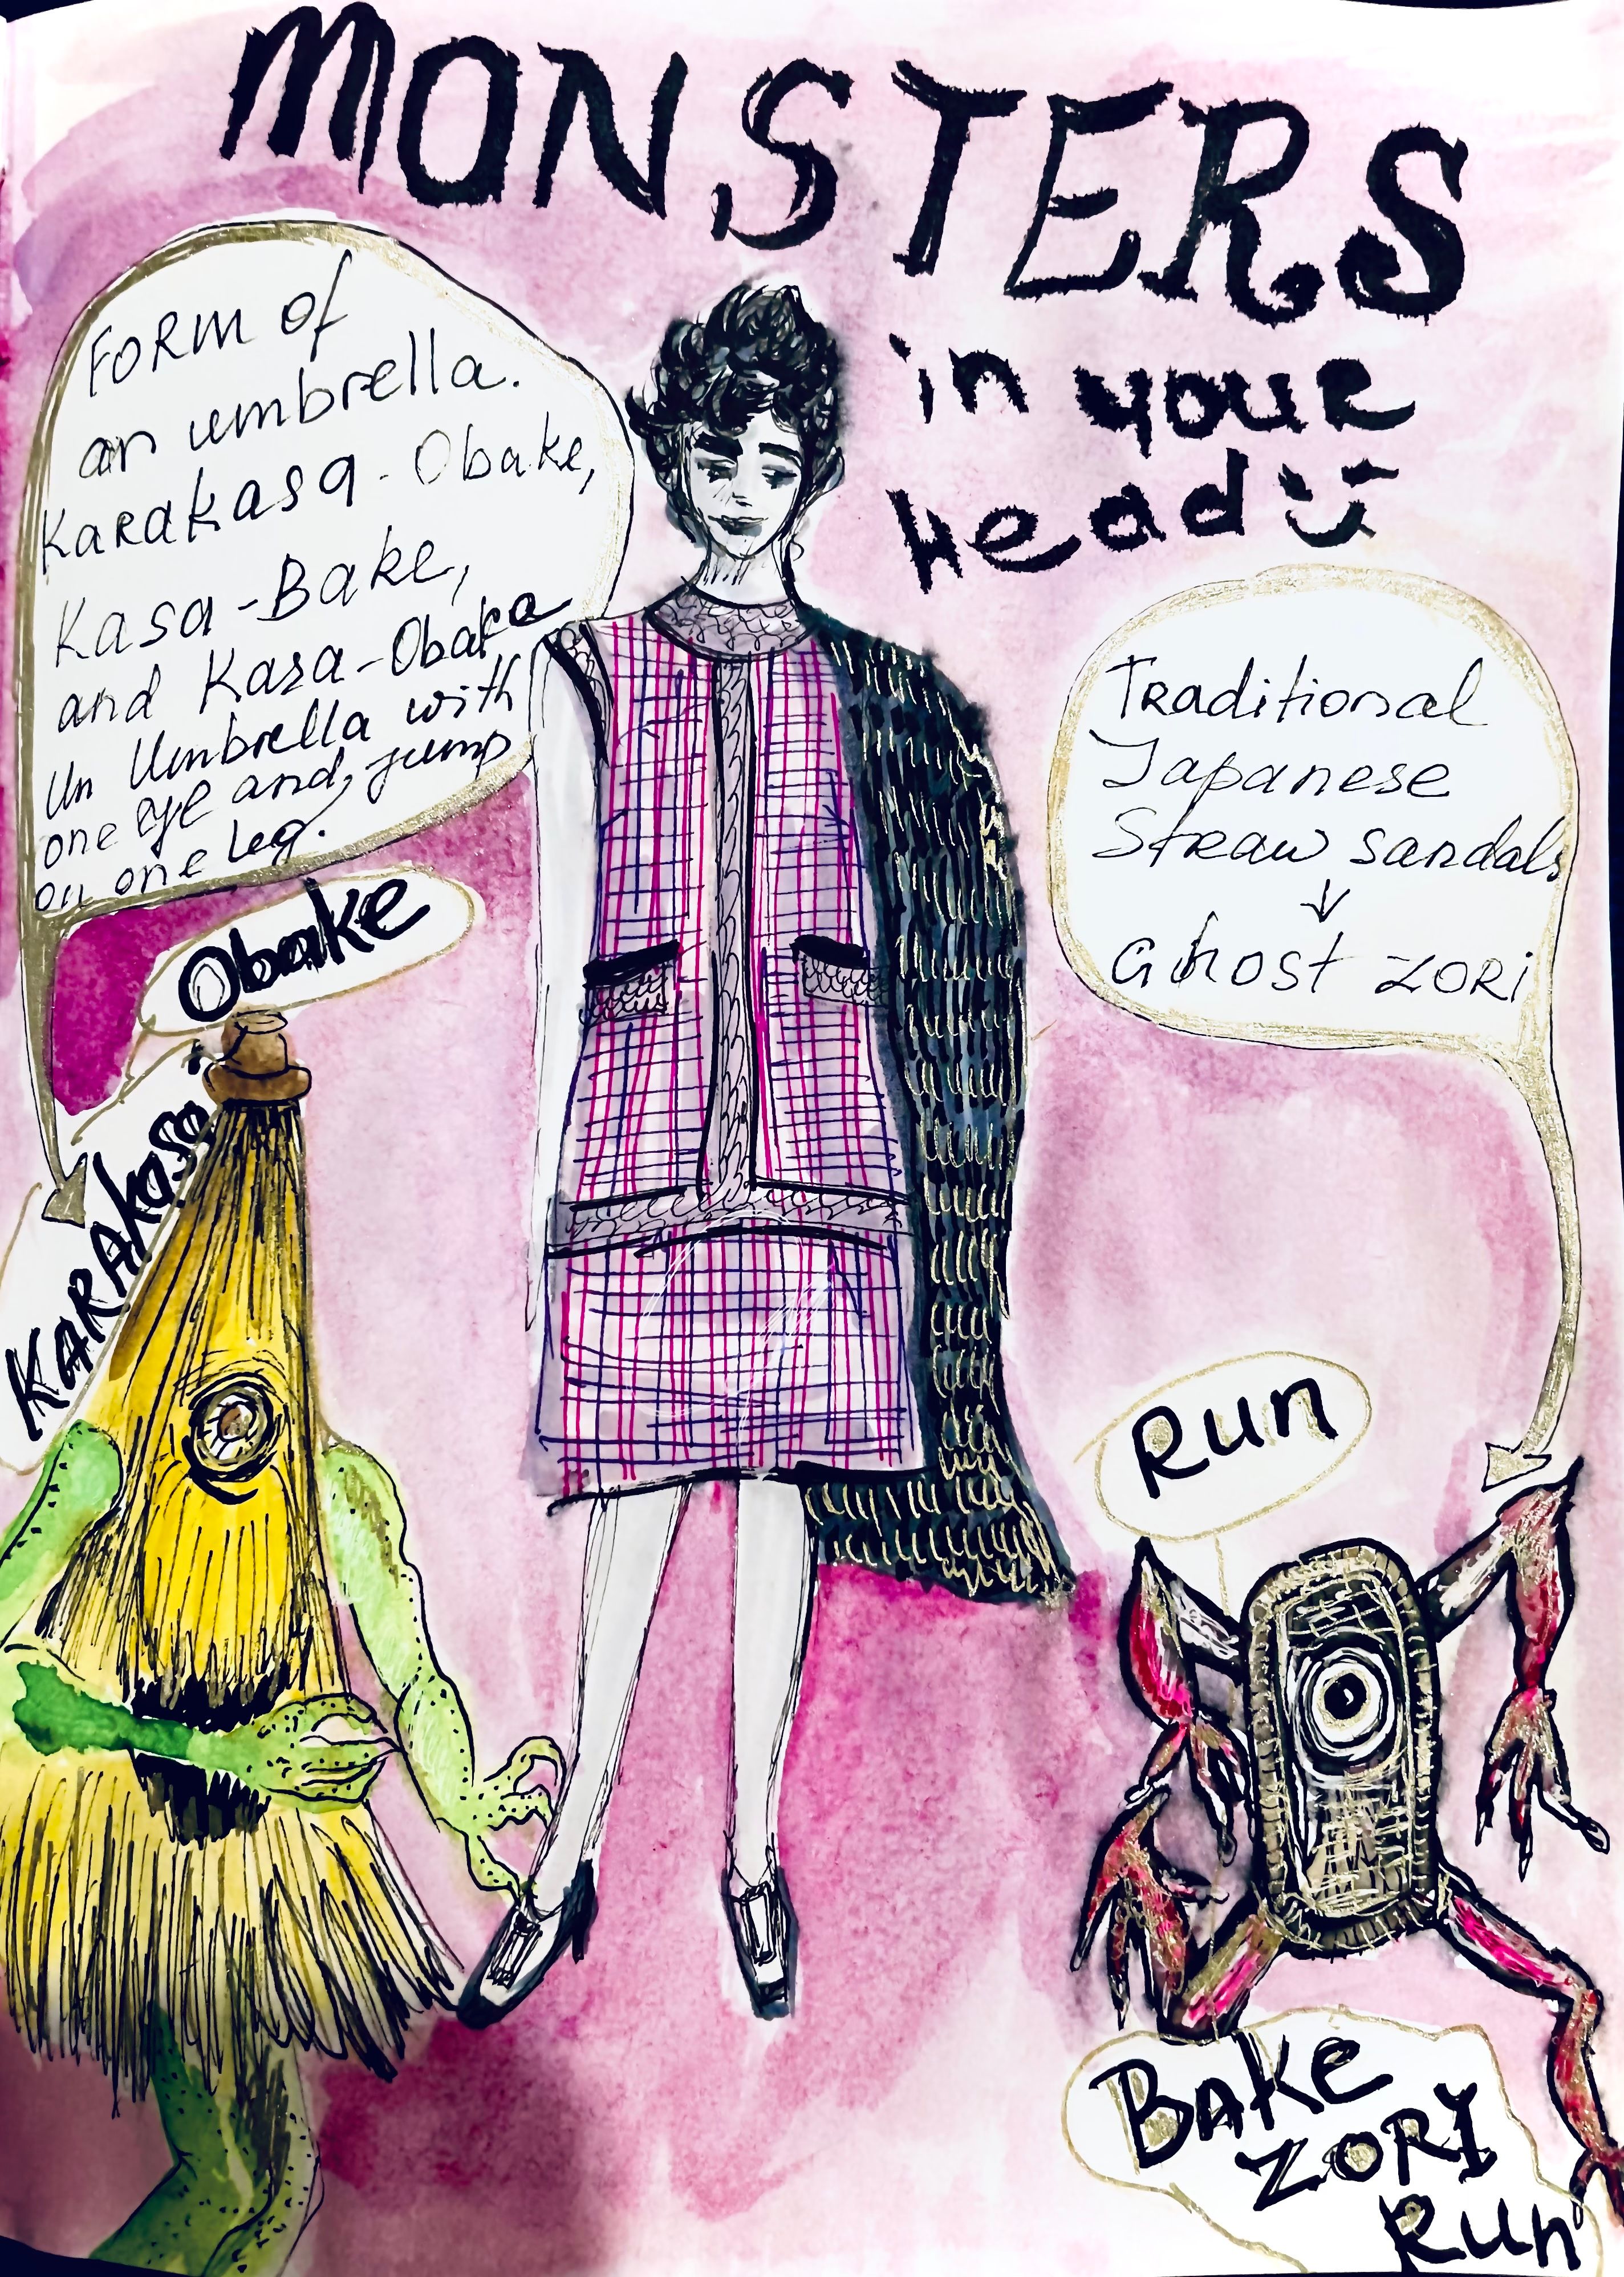 MONSTERS
in your
head
FORM of
an umbrella.
Karakasa-Obake,
Kasa-Bake,
and Kasa-Obake
Un Umbrella with
one eye and jump
on one leg.
Obake
KARAKasa
Traditional
Japanese
Straw sandals
↓
Ghost ZORI
Run
BAKE
ZORI
Run